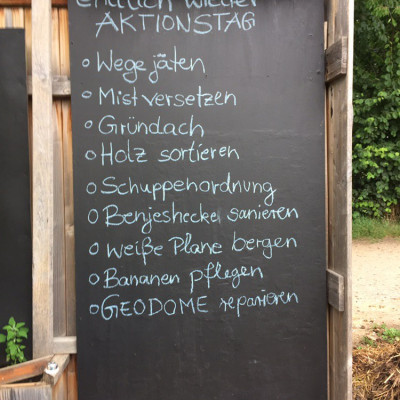 endlich wieder
AKTIONSTAG
Wege jäten
Mist versetzen
Gründach
Holz sortieren
Schuppenordnung
Benjeshecke sanieren
weiße Plane bergen
Bananen pflegen
GEODOME reparieren